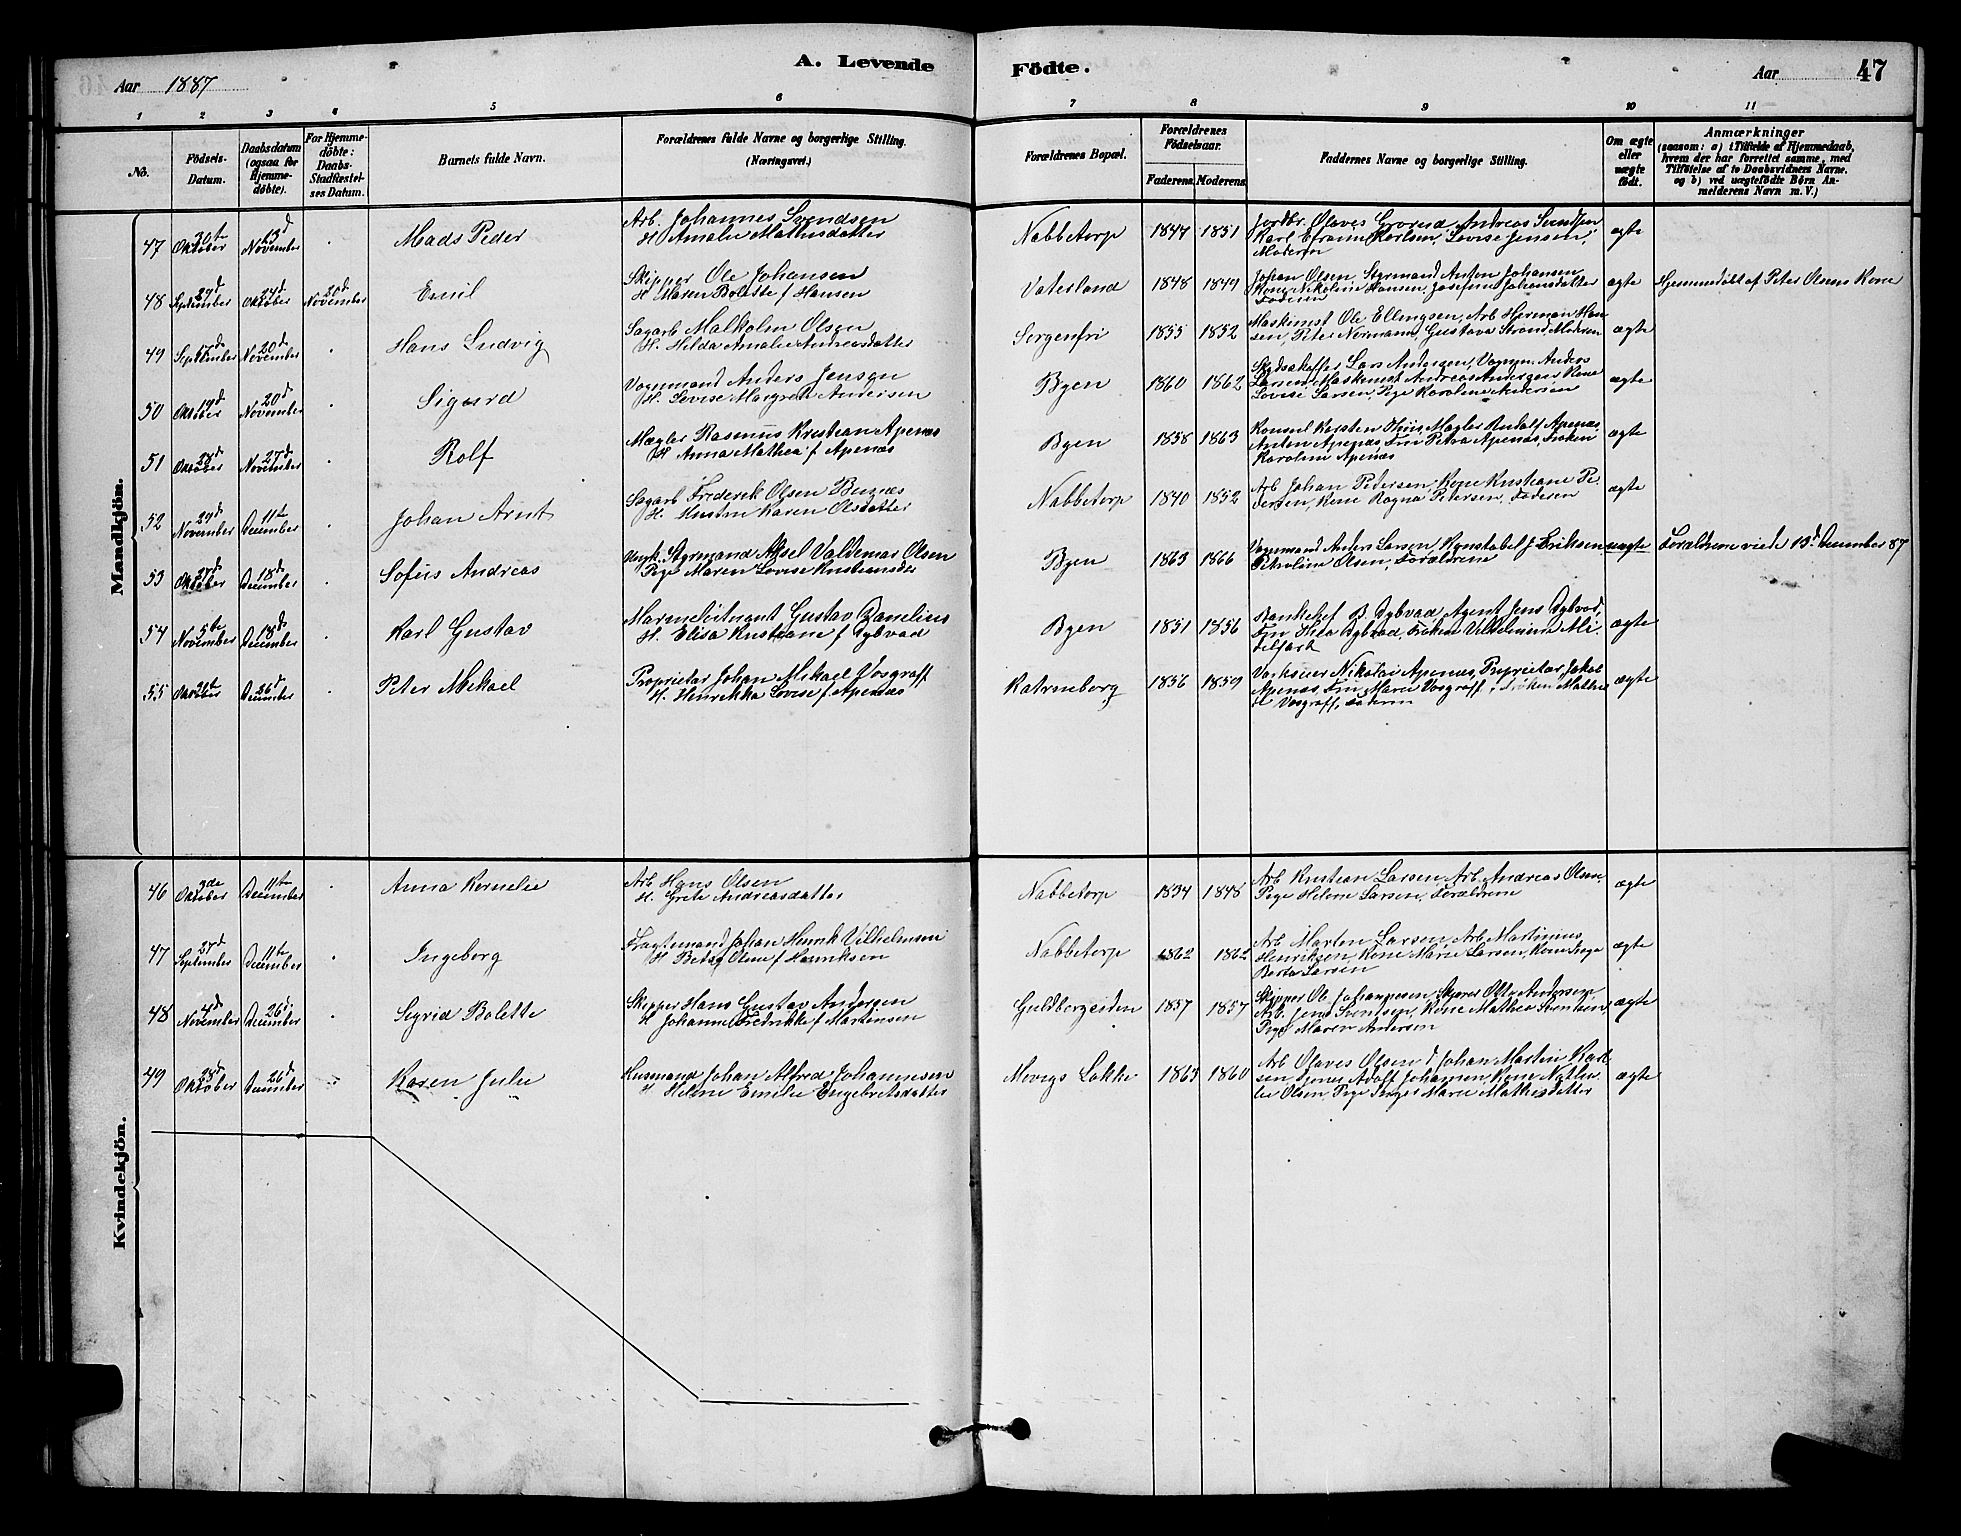 Aar 1887
A. Levende
Födte.
Aar
47
1 2 3 4 5 6 7 8 9 10 11
No.
Födsels-Datum.
Daabsdatum (ogsaa for Hjemmedöbte).
For Hjemmedöbte: Daabs-Stadfæstelses Datum.
Barnets fulde Navn.
Forældrenes fulde Navne og borgerlige Stilling. (Næringsvei.)
Forældrenes Bopæl.
Forældrenes Födselsaar.
Faderens. Moderens.
Faddernes Navne og borgerlige Stilling.
Om ægte eller uægte födt.
Anmærkninger (saasom: a) i Tilfælde af Hjemmedaab, hvem der har forrettet samme, med Tilföielse af to Daabsvidners Navne. og b) ved uægtefödte Börn Anmelderens Navn m. V.)
Mandkjön.
47 Oktober 13d November Mads Peder
Arb Johannes Svendsen
H Amalie Mathisdatter
Nabbetorp 1847 1851
Jordbr. Olaves Grorud, Andreas Svendsen
Karl Efraim Karlsen, Lovise Jensen,
Moderen
ægte
48 September 24d Oktober 20d November Emil
Skipper Ole Johansen
H Maren Bolette f Hansen
Vaterland 1848 1849
Johan Olsen, Styrmand Anton Johansen
Kone Nikoline Hansen, Josefine Johansdatter
Faderen
ægte Hjemmedöbt af Peter Olsens Kone
49 September 20d November Hans Ludvig
Sagarb Malkolm Olsen
H. Hilda Amalie Andreasdatter
Sorgenfri 1855 1852
Maskinist Ole Ellingsen, Arb Herman Han
sen, Peter Normann, Gustava Strand, Moderen
ægte
50 19d Oktober 20d November Sigurd
Vognmand Anders Jensen
H. Lovise Margrete Andersen
Byen 1860 1862
Lars Andersen, Vognm. Anders
Larsen, Maskinist Andreas Andersen Kone
Lovise Larsen, Pige Karoline Andersen
ægte
51 Oktober 27d November Rolf
Mægler Rasmus Kristian Apenæs
H Anna Mathea f Apenæs
Byen 1858 1863
Konsul Karsten Thiis, Mægler Rudolf Apenæs,
Anton Apenæs, Fru Petra Apenæs, Fröken
Karoline Apenæs
ægte
52 29d November 11te December Johan Arnt
Sagarb Frederik Olsen
H. Hustru Karen Olsdatter
Nabbetorp 1840 1852
Arb Johan Pedersen Kone Kristiane Pe
dersen, Kone Ragna Petersen, Faderen
ægte
53 27d Oktober 18d December Sofus Andreas
Ungk. Styrmand Aksel Valdemar Olsen
Pige Maren Lovise Kristiansdr
Byen 1863 1866
Vognmand Anders Larsen, Konstabel J. Eriksen
Petroline Olsen, Forældrene
uægte Forældrene viede 13d December 87
54 5te November 18d December Karl Gustav
Marinelöitnant Gustav Zanelius
H. Elisa Kristiane f Dybvad
Byen 1851 1856
Bankchef B. Dybvad, Agent Jens Dybvad,
Fru Thea Dybvad, Fröken Vilhelmine Mi
delfart
ægte
55 21te Oktober 26d December Peter Mikael
Proprietær Johan Mikael Vosgraff
H. Henrikka Lovise f Apenæs
Katrineborg 1856 1859
Værkseier Nikolai Apenæs, Proprietær Jakob
Apenæs, Fru Marie Vosgraff, Fröken Mathil
de Vosgraff, Faderen
ægte
Kvindekjön.
46 3de Oktober 11te December Anna Kornelie
Arb. Hans Olsen
H. Grete Andreasdatter
Nabbetorp 1834 1848
Arb Kristian Larsen, Arb. Andreas Olsen,
Pige Helene Larsen, Forældrene
ægte
47 27d September 11te December Ingeborg
Fragtemand Johan Henrik Vilhelmsen
H Betsy Oline f Henriksen
Nabbetorp 1862 1862
Arb Morten Larsen, Arb. Martinius
Henriksen, Kone Marie Larsen, Kone Inga
Berta Larsen
ægte
48 4d November 26d December Sigrid Bolette
Skipper Hans Gustav Andersen
H Johanne Fredrikke f Martinsen
Guldbergsiden 1857 1857
Skipper Ole Johannesen, Skipper Otto Andersen
Arb. Jens Svendsen, Kone Mathea Svendsen,
Pige Maren Andersen
ægte
49 28d Oktober 26d December Karen Julie
Husmand Johan Alfred Johannesen
H Helene Emilie Engebretsdatter
Mvergs Lökke 1863 1860
Arb Olaves Olsen, Johan Martin Karl
sen, Adolf Johansen, Kone Natha
lie Olsen, Pige Inger Marie Mathisdatter
ægte